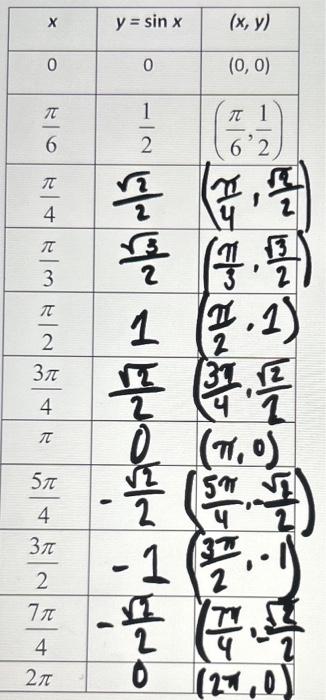 x y = sin x (x, y)
0 0 (0, 0)
π/6 1/2 (π/6, 1/2)
π/4 √2/2 (π/4, √2/2)
π/3 √3/2 (π/3, √3/2)
π/2 1 (π/2, 1)
3π/4 √2/2 (3π/4, √2/2
π 0 (π, 0)
5π/4 -√2/2 (5π/4, -√2/2)
3π/2 -1 (3π/2, -1)
7π/4 -√2/2 (7π/4, -√2/2
2π 0 (2π, 0)